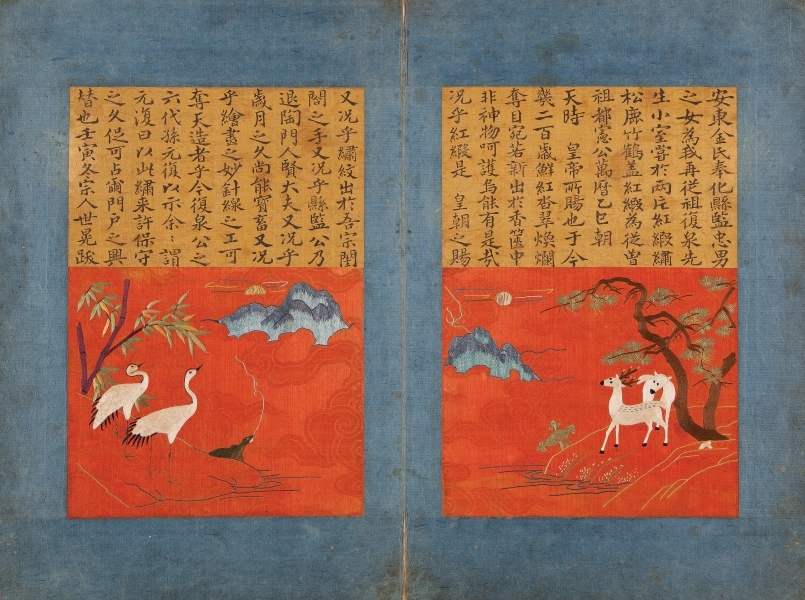 安東金氏奉化縣監忠男
之女為我再從祖復泉先
生小室嘗於兩片紅緞繡
松鹿竹鶴盖紅緞為從曽
祖都憲公萬曆乙巳朝
天時 皇帝所賜也于今
幾二百歲鮮紅杳翠煥爛
奪目宛若新出於香篋中
非神物呵護烏能有是哉
况乎紅緞是 皇朝之賜
又况乎繡紋出於吾宗閨
閤之手又况乎縣監公乃
退陶門人賢大夫又况乎
歲月之久尚能寶畜又况
乎繪畫之妙針線之工可
奪天造者乎今復泉公之
六代孫元復以示余〻謂
元復曰以此繡来許保守
之久促可占爾門戶之興
替也壬寅冬宗人世晃跋